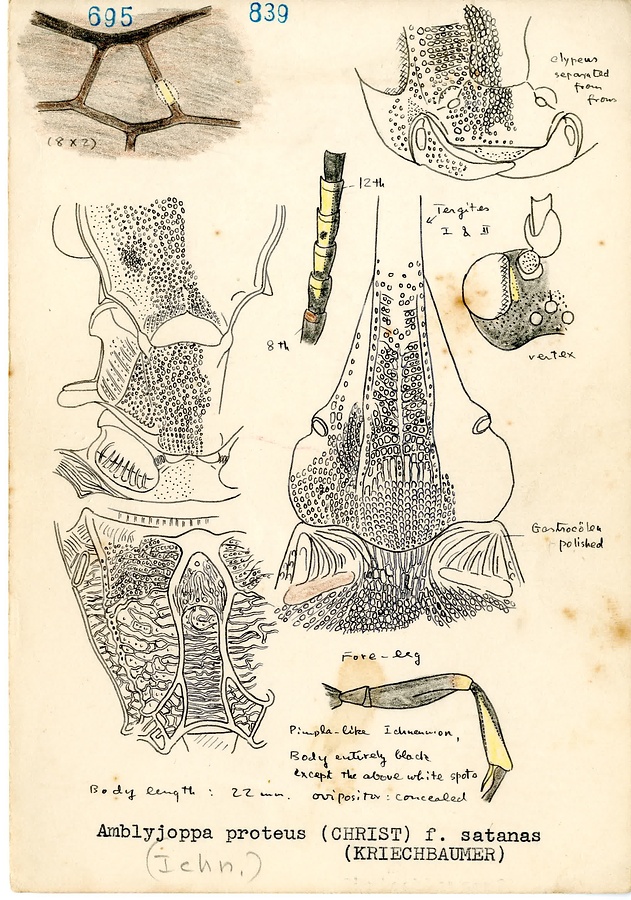 695
839
(8 x 2)
clypeus
separated
from
frons
12th
Tergites
I & II
8th
vertex
Gastrocölen
polished
Fore-leg
Pimpla-like Ichneumon,
Body entirely black
except the above white spots
Body length : 22 mm. ovipositor : concealed
Amblyjoppa proteus (CHRIST) f. satanas
(KRIECHBAUMER)
(Ichn.)